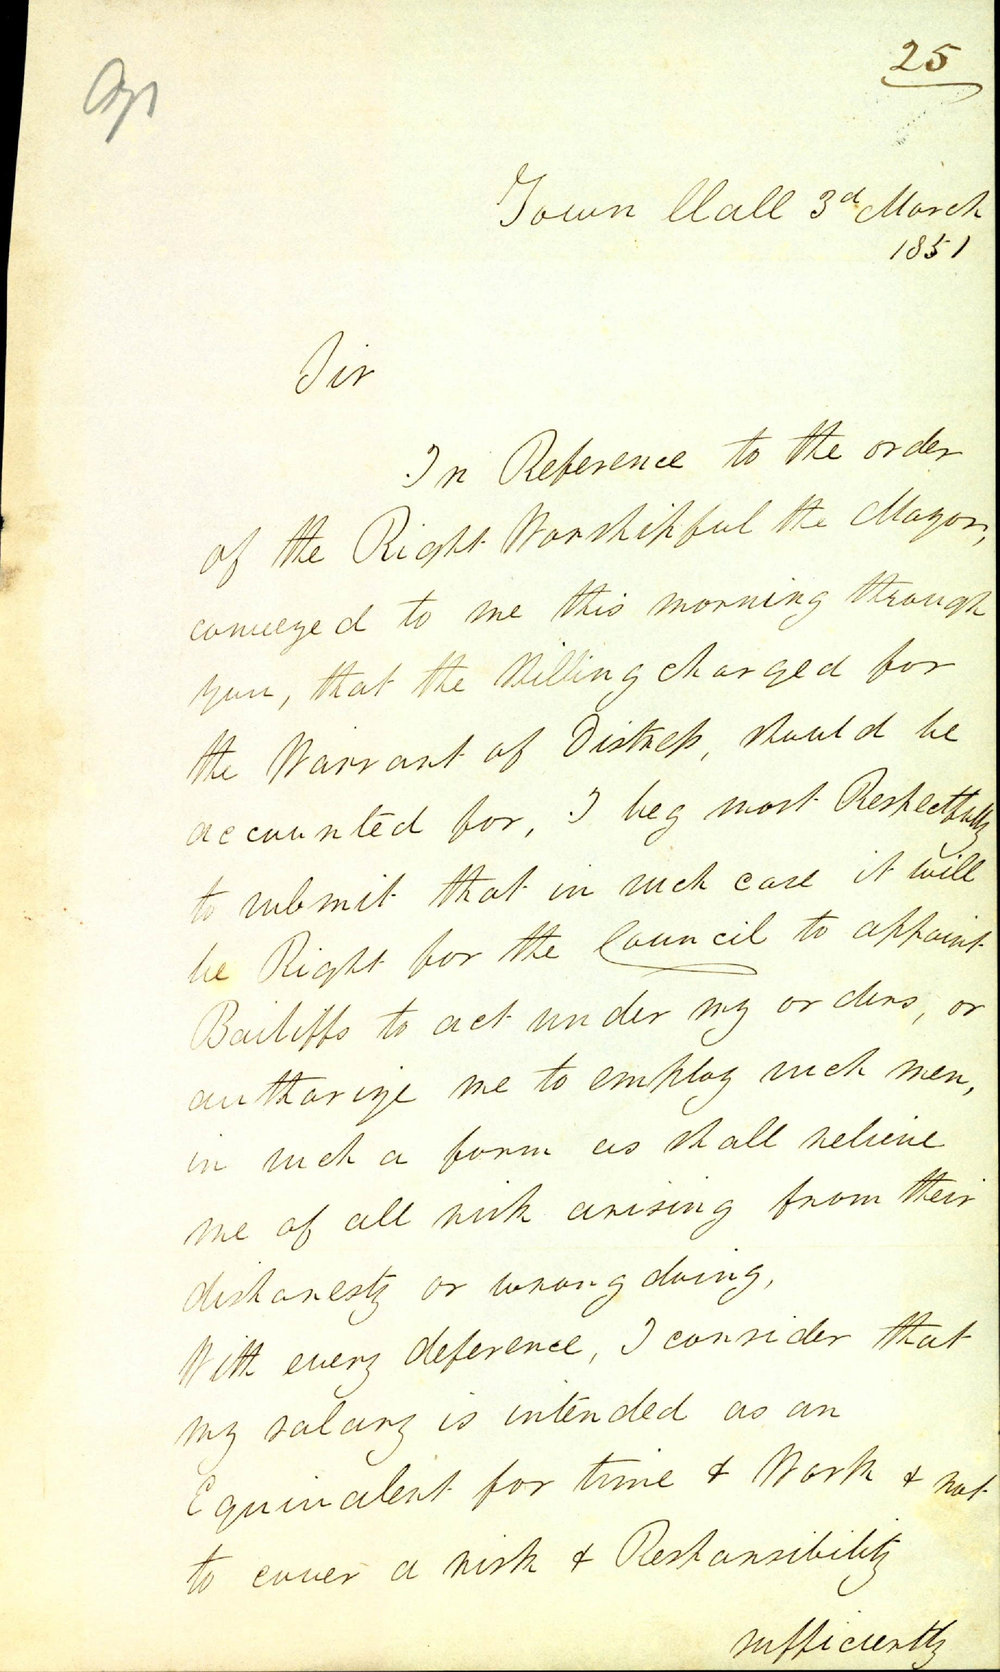 25
Town Hall 3d March
1851
Sir
In Reference to the order
of the Right Worshipful the Mayor,
conveyed to me this morning through
you, that the shilling charged for
the Warrant of Distress, should be
accounted for, I beg most Respectfully
to submit that in such case it will
be Right for the Council to appoint
Bailiffs to act under my orders, or
authorize me to employ such men,
in such a form as shall relieve
me of all risk arising from their
dishonesty or wrong doing,
With every deference, I consider that
my salary is intended as an
Equivalent for time & Work & not
to cover a risk & Responsibility
sufficiently